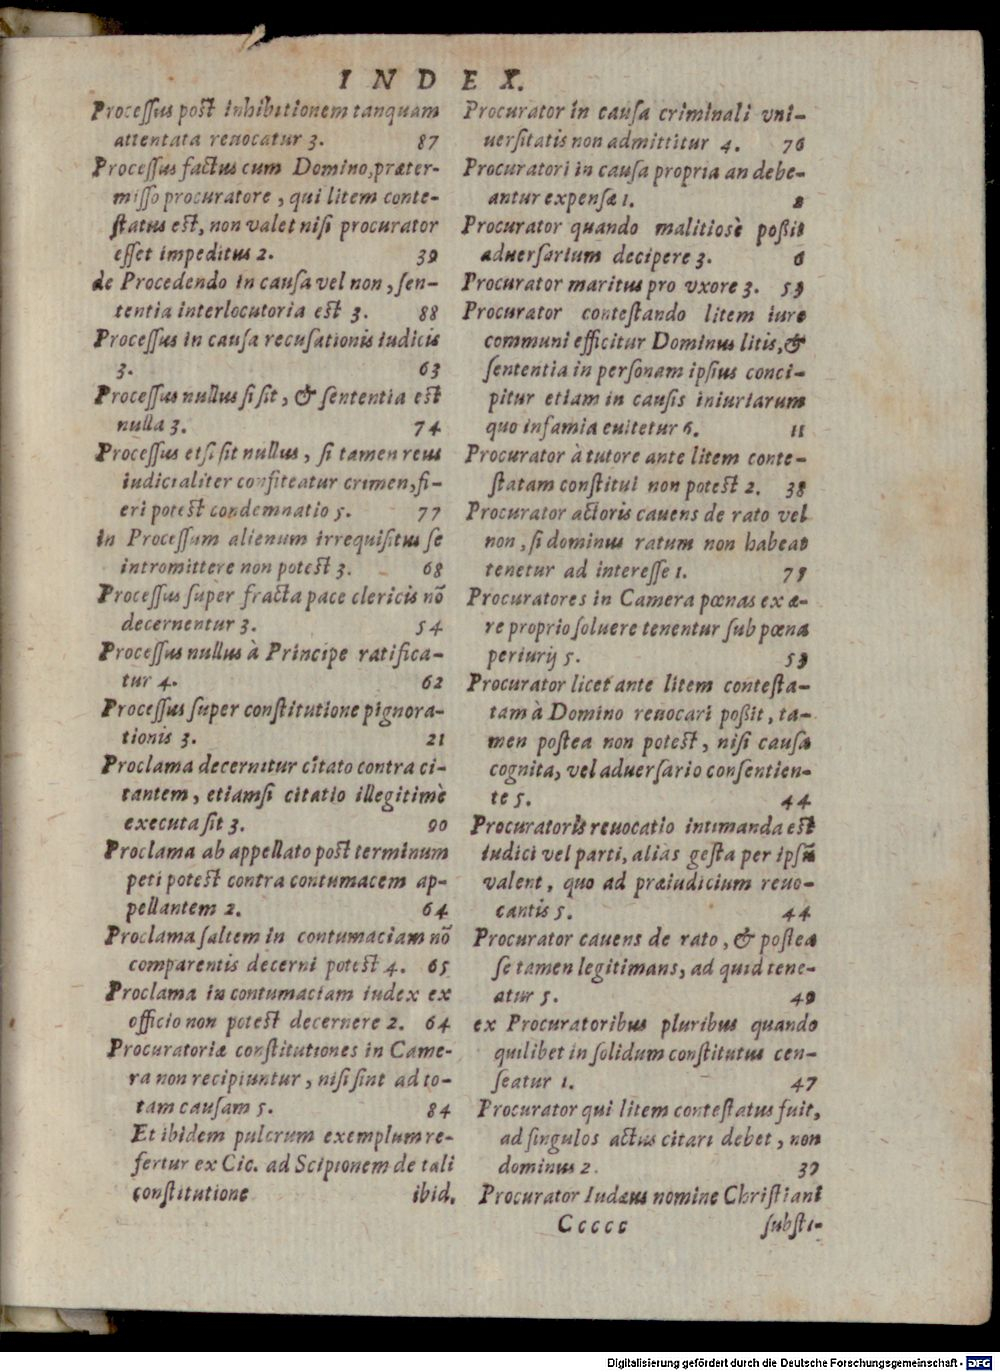 INDEX.
Proceſſus poſt inhibitionem tanquam
attentata reuocatur 3. 87
Proceſſus factus cum Domino, præter-
miſſo procuratore, qui litem conte-
ſtatus eſt, non valet niſi procurator
eſſet impeditus 2. 39
de Procedendo in cauſa vel non, ſen-
tentia interlocutoria eſt 3. 88
Proceſſus in cauſa recuſationis iudicis
3. 63
Proceſſus nullus ſi ſit, & ſententia eſt
nulla 3. 74
Proceſſus etſi ſit nullus, ſi tamen reus
iudicialiter confiteatur crimen, fi-
eri poteſt condemnatio 5. 77
in Proceſſum alienum irrequiſitus ſe
intromittere non poteſt 3. 68
Proceſſus ſuper fracta pace clericis nō
decernentur 3. 54
Proceſſus nullus à Principe ratifica-
tur 4. 62
Proceſſus ſuper conſtitutione pignora-
tionis 3. 21
Proclama decernitur citato contra ci-
tantem, etiamſi citatio illegitimè
executa ſit 3. 90
Proclama ab appellato poſt terminum
peti poteſt contra contumacem ap-
pellantem 2. 64
Proclama ſaltem in contumaciam nō
comparentis decerni poteſt 4. 65
Proclama in contumaciam iudex ex
officio non poteſt decernere 2. 64
Procuratoriæ conſtitutiones in Came-
ra non recipiuntur, niſi ſint ad to-
tam cauſam 5. 84
Et ibidem pulcrum exemplum re-
fertur ex Cic. ad Scipionem de tali
conſtitutione ibid.
Procurator in cauſa criminali vni-
uerſitatis non admittitur 4. 76
Procuratori in cauſa propria an debe-
antur expenſæ 1. 8
Procurator quando malitiosè poßit
aduerſarium decipere 3. 6
Procurator maritus pro vxore 3. 59
Procurator conteſtando litem iure
communi efficitur Dominus litis, &
ſententia in perſonam ipſius conci-
pitur etiam in cauſis iniuriarum
quo infamia euitetur 6. 11
Procurator à tutore ante litem conte-
ſtatam conſtitui non poteſt 2. 38
Procurator actoris cauens de rato vel
non, ſi dominus ratum non habeat
tenetur ad intereſſe 1. 79
Procuratores in Camera pœnas ex æ-
re proprio ſoluere tenentur ſub pœna
periurij 5. 59
Procurator licet ante litem conteſta-
tam à Domino reuocari poßit, ta-
men poſtea non poteſt, niſi cauſa
cognita, vel aduerſario conſentien-
te 5. 44
Procuratoris reuocatio intimanda eſt
iudici vel parti, alias geſta per ipſū
valent, quo ad præiudicium reuo-
cantis 5. 44
Procurator cauens de rato, & poſtea
ſe tamen legitimans, ad quid tene-
atur 5. 49
ex Procuratoribus pluribus quando
quilibet in ſolidum conſtitutus cen-
ſeatur 1. 47
Procurator qui litem conteſtatus fuit,
ad ſingulos actus citari debet, non
dominus 2. 39
Procurator Iudæus nomine Chriſtiani
Ccccc ſubſti-
Digitalisierung gefördert durch die Deutsche Forschungsgemeinschaft - DFG